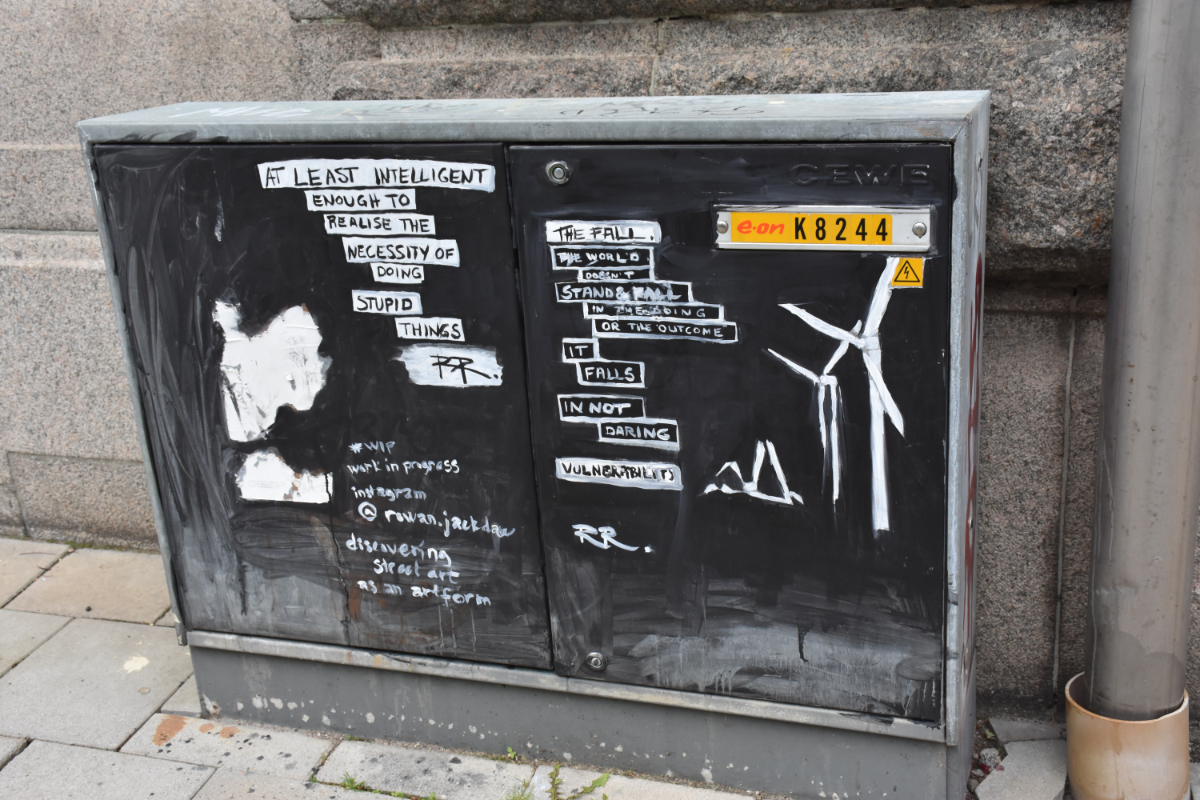 AT LEAST INTELLIGENT
ENOUGH TO
REALISE THE
NECESSITY OF
DOING
STUPID
THINGS
RR.
#WIP
work in progress
instagram
@ rowan.jackdaw
discovering
street art
as an artform
CEWE
e·on K8244
THE FALL.
THE WORLD
DOESN'T
STAND & FALL
IN THE DOING
OR THE OUTCOME
IT
FALLS
IN NOT
DARING
VULNERABILITY
RR.